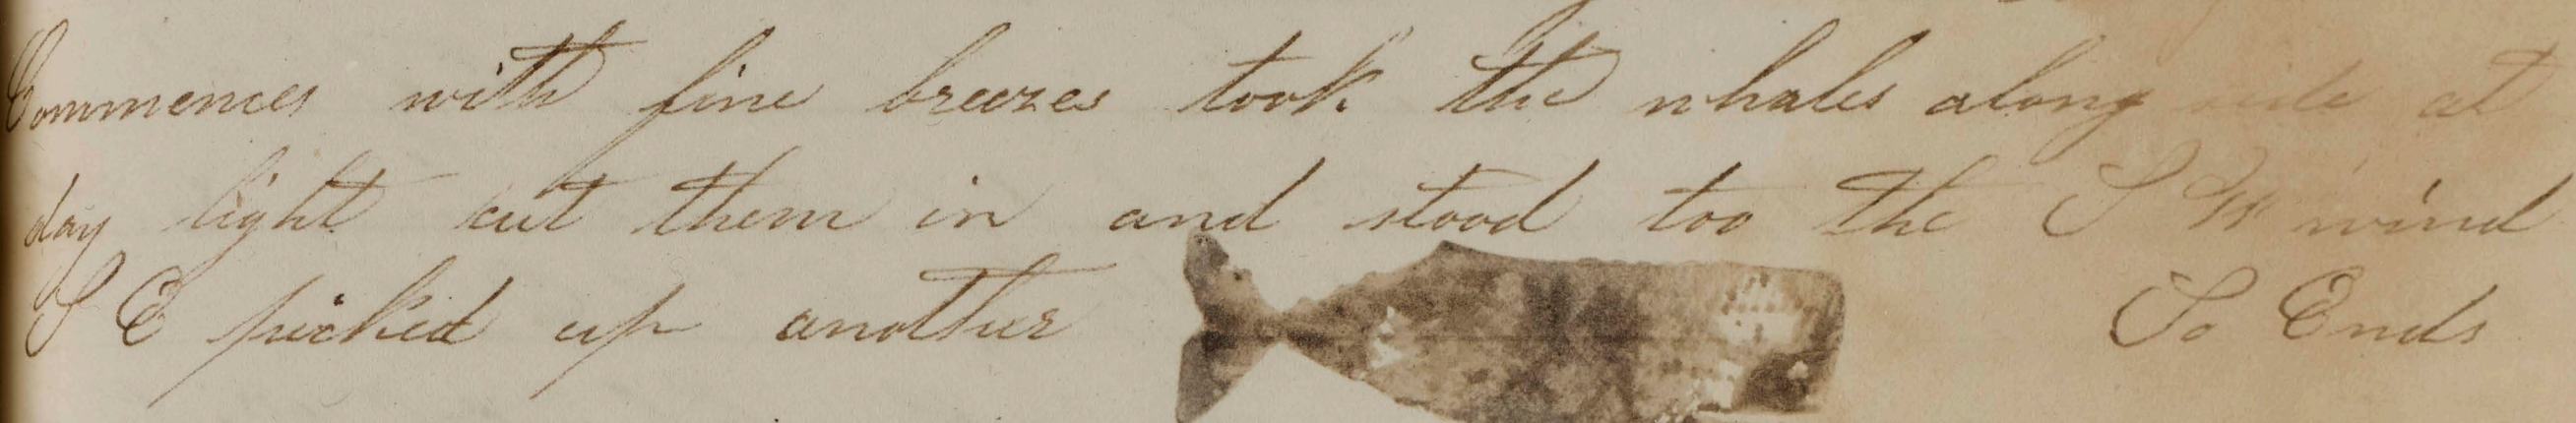 Commences with fine breezes took the whales along side at
day light cut them in and stood too the S W wind
S E picked up another So Ends